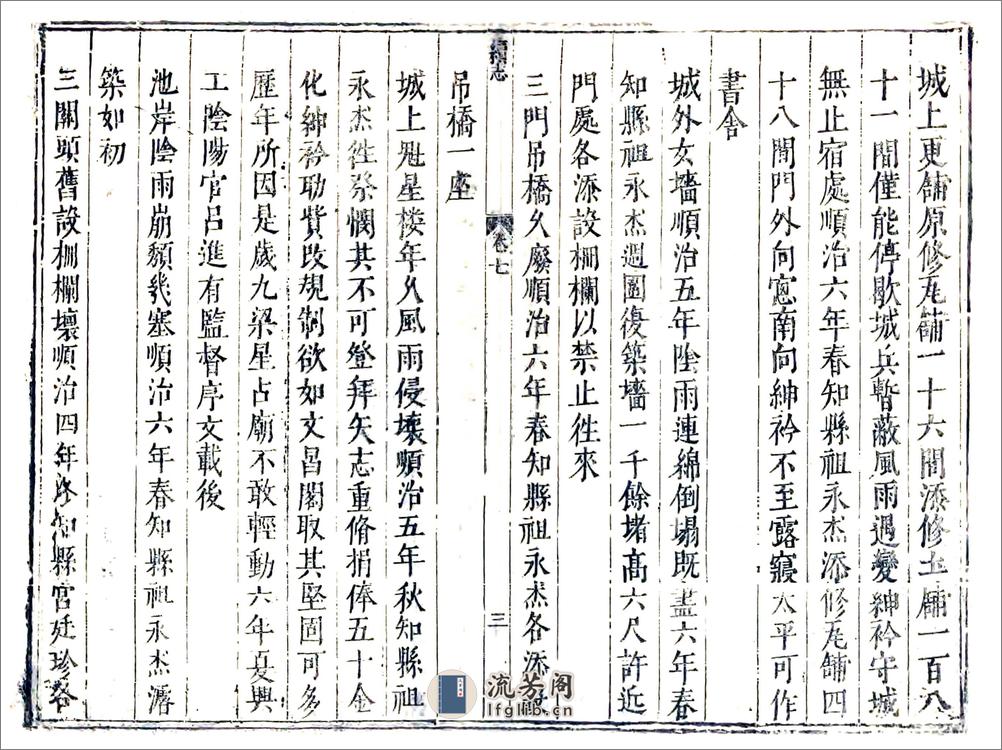 城上更鋪原修瓦鋪一十六間添修土鋪一百八
十一間僅能停歇城兵暫蔽風雨遇變紳衿守城
無止宿處順治六年春知縣祖永杰添修瓦鋪四
十八間門外向窓南向紳衿不至露寢太平可作
書舍
城外女墻順治五年陰雨連綿倒塌既盡六年春
知縣祖永杰週圍復築墻一千餘堵高六尺許近
門處各添設柵欄以禁止徃來
三門吊橋久廢順治六年春知縣祖永杰各添
續志
卷七
三
吊橋一座
城上魁星楼年久風雨侵壞順治五年秋知縣祖
永杰徃祭憫其不可登拜矢志重脩捐俸五十金
化紳衿助貲改規制欲如文昌閣取其堅固可多
歷年所因是歲九梁星占廟不敢輕動六年夏興
工陰陽官呂進有監督序文載後
池岸陰雨崩頹幾塞順治六年春知縣祖永杰濬
築如初
三關頭舊設柵欄壞順治四年冬知縣宮廷珍各
流芳阁
lfglib.com.cn